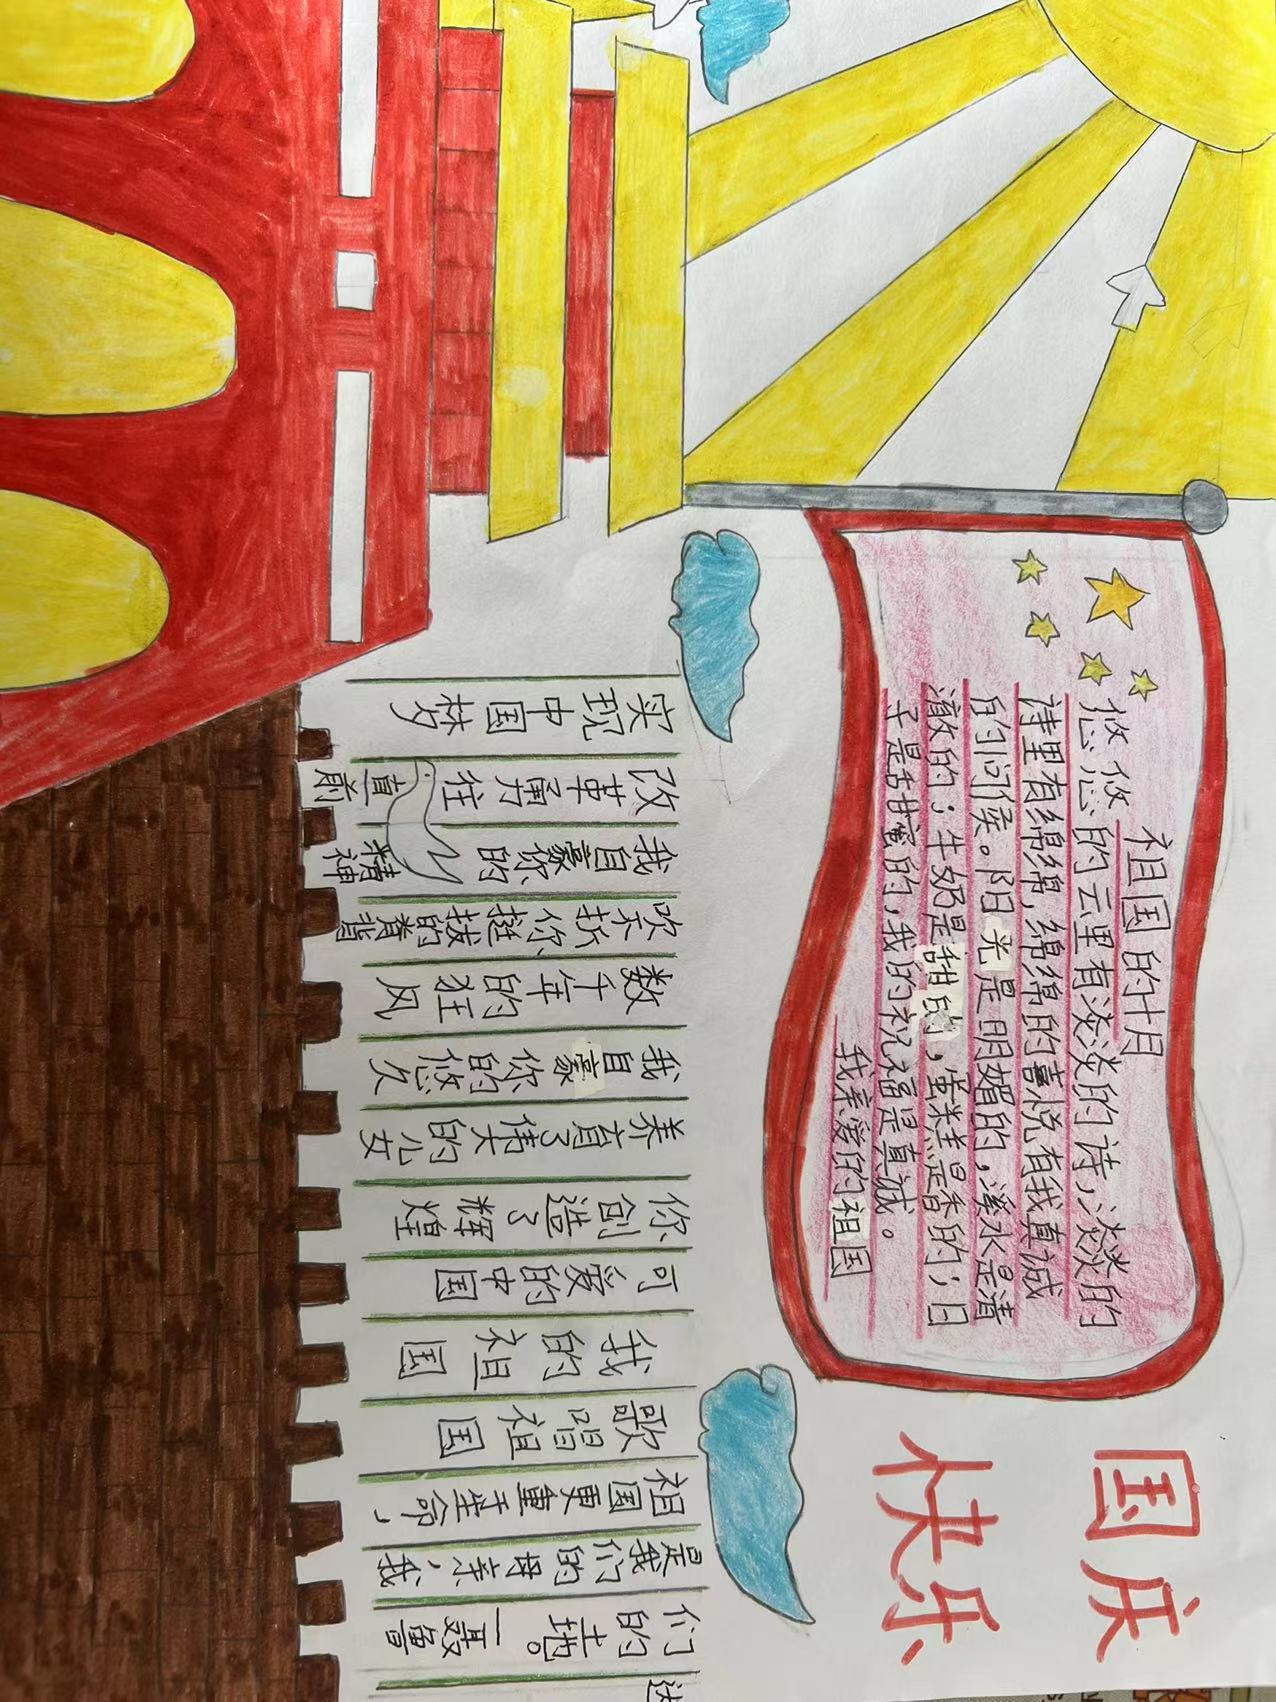 国庆
快乐
祖国的十月
悠悠的云里有淡淡的诗,淡淡的
诗里有绵绵,绵绵的喜悦有我真诚
的问候。阳光是明媚的,溪水是清
澈的;牛奶是甜的,蛋糕是香的;日
子是甜蜜的,我的祝福是真诚。
我亲爱的祖国
歌唱祖国
我的祖国
可爱的中国
你创造了辉煌
养育了伟大的少女
我自豪你的悠久
数千年的狂风
吹不折你挺拔的脊背
我自豪你的精神
改革勇往直前
实现中国梦
祖国更重于生命,
是我们的母亲,我
们的土地。一聂鲁